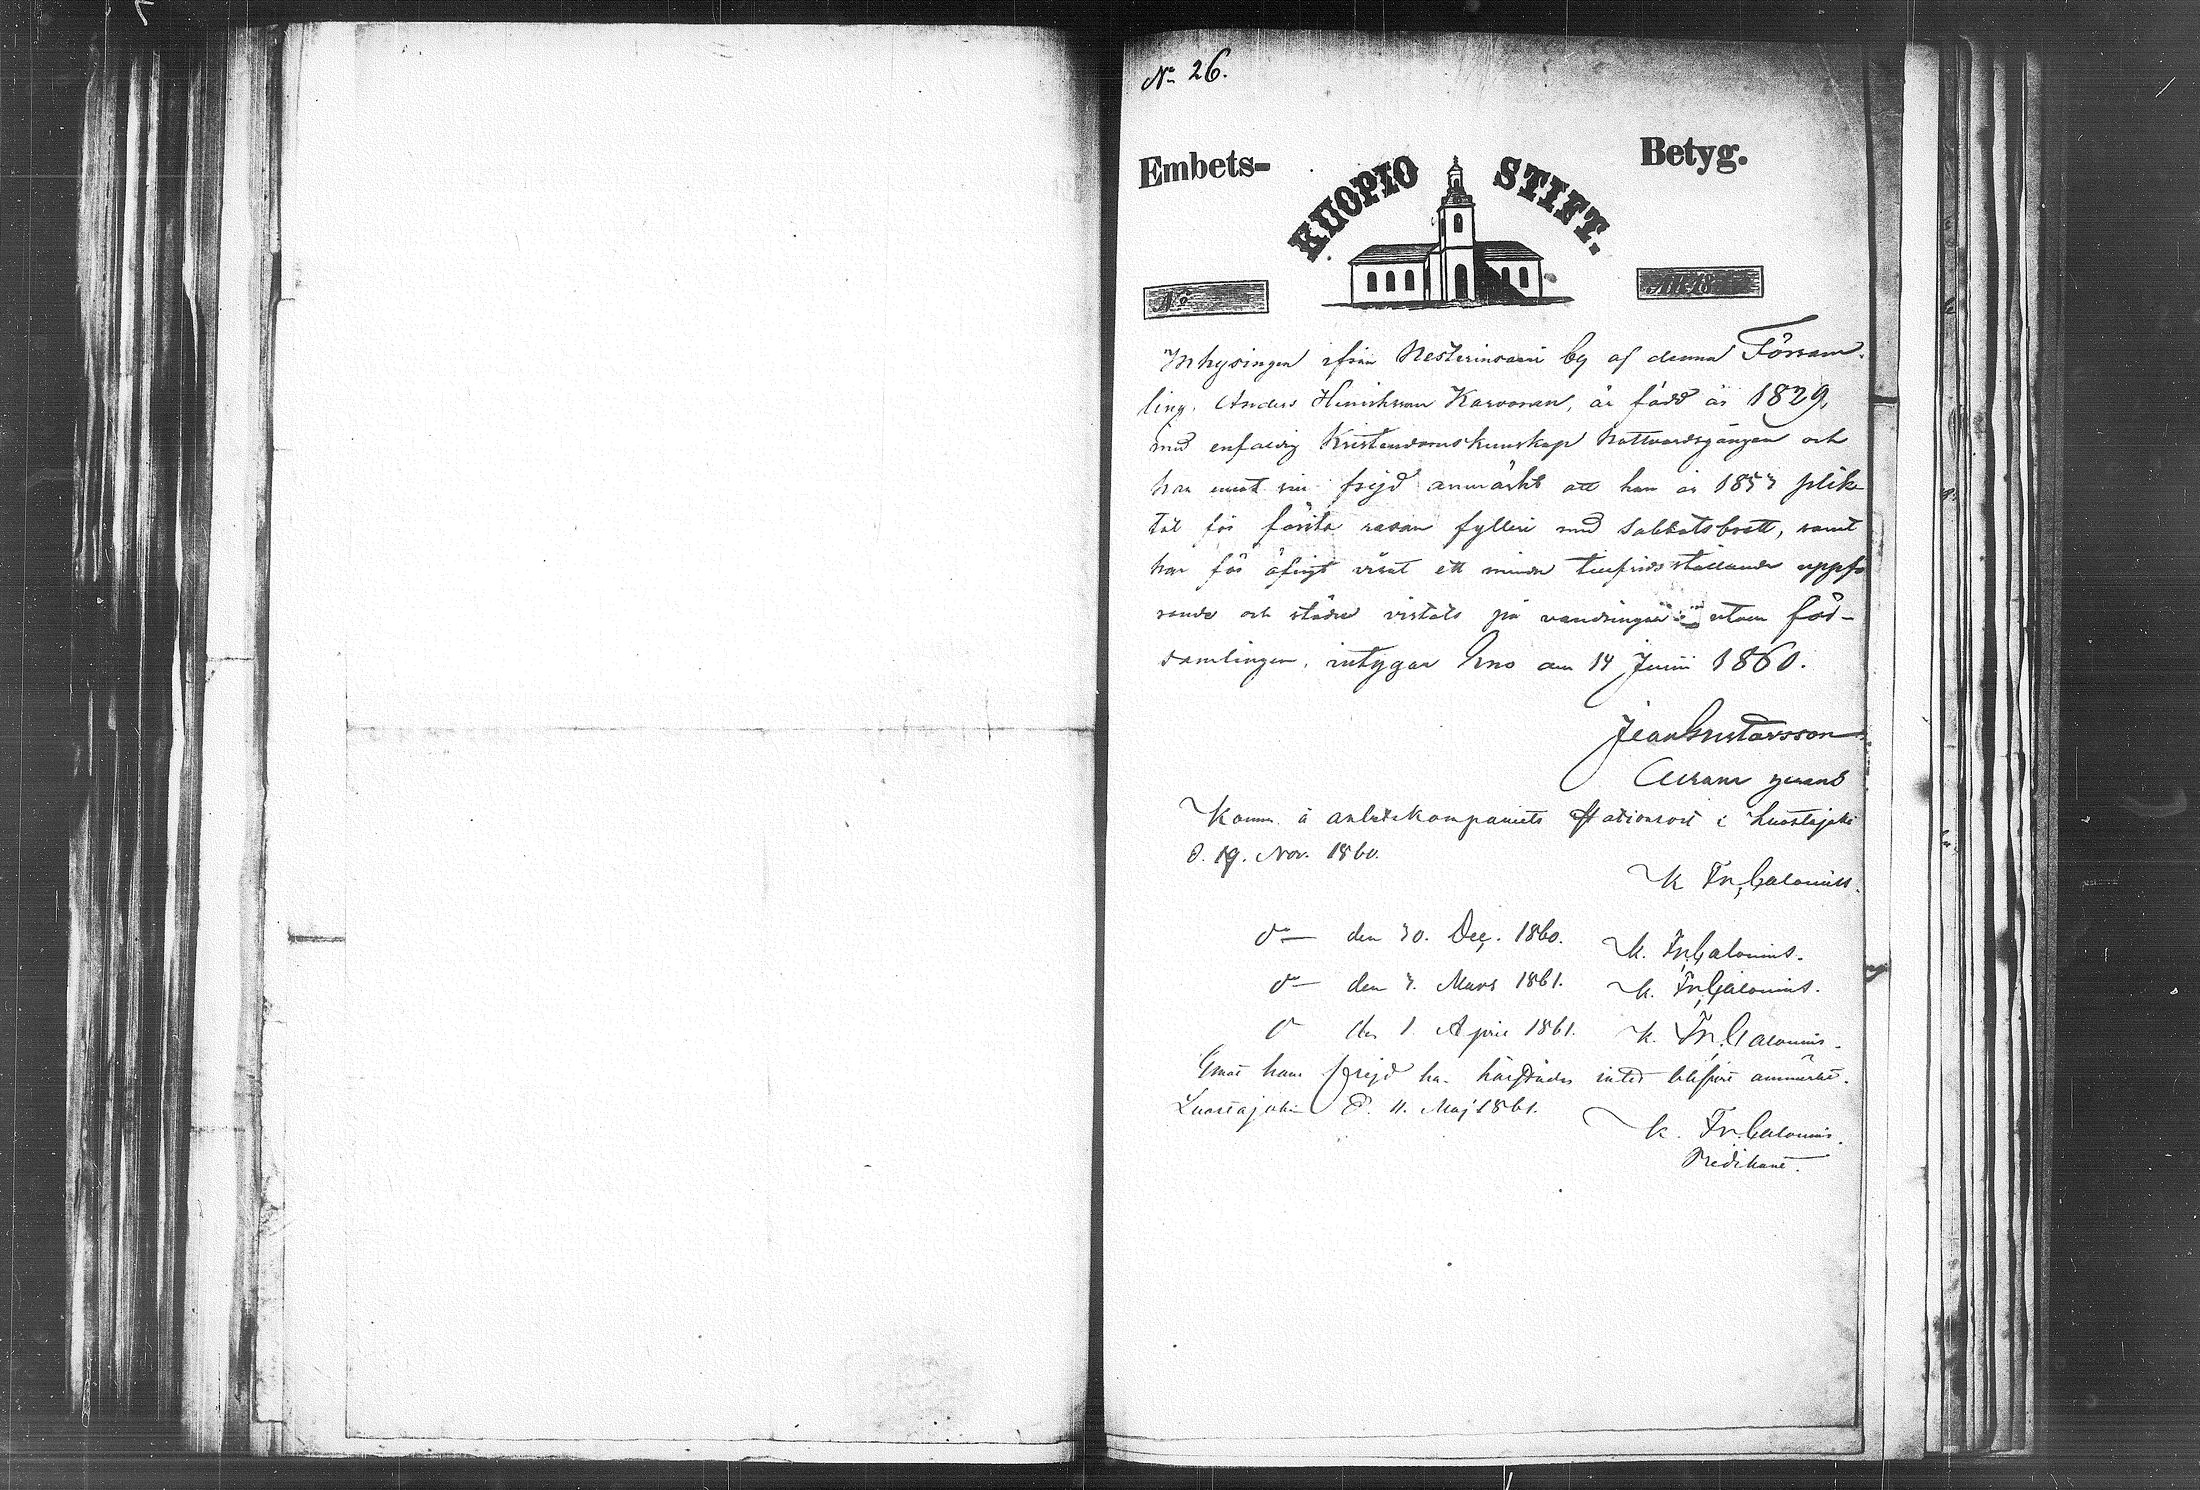 No 26.
Embets- KUOPIO STIFT. Betyg.
No
Inhysingen ifrån Nesterinsaari by af denna Försam-
ling, Anders Hinriksson Karvonen, är född år 1829,
med enfaldig Kristendomskunskap Nattvardsgången och
har emot sin frejd anmärkt att han år 1857 plik-
tat för första resan fylleri med sabbatsbrott, samt
har för öfrigt visat ett mindre tillfridsställande uppfö
rande och städse vistats på vandringar utom för-
samlingen, intygar Eno den 14 Junii 1860.
Jean Gustavsson
Komm. å arbetskompaniets Stationsort i Luostajoki
d. 19. Nov. 1860.
K Fr. Calonius.
do— den 30. Dec. 1860. K. Fr. Calonius.
do— den 3. Mars 1861. K. Fr. Calonius.
do den 1 April 1861. K. Fr. Calonius.
Emot hans frejd har härstädes intet blifvit anmärkt.
Luostajoki d. 11. Maj 1861.
K. Fr. Calonius.
Predikant.